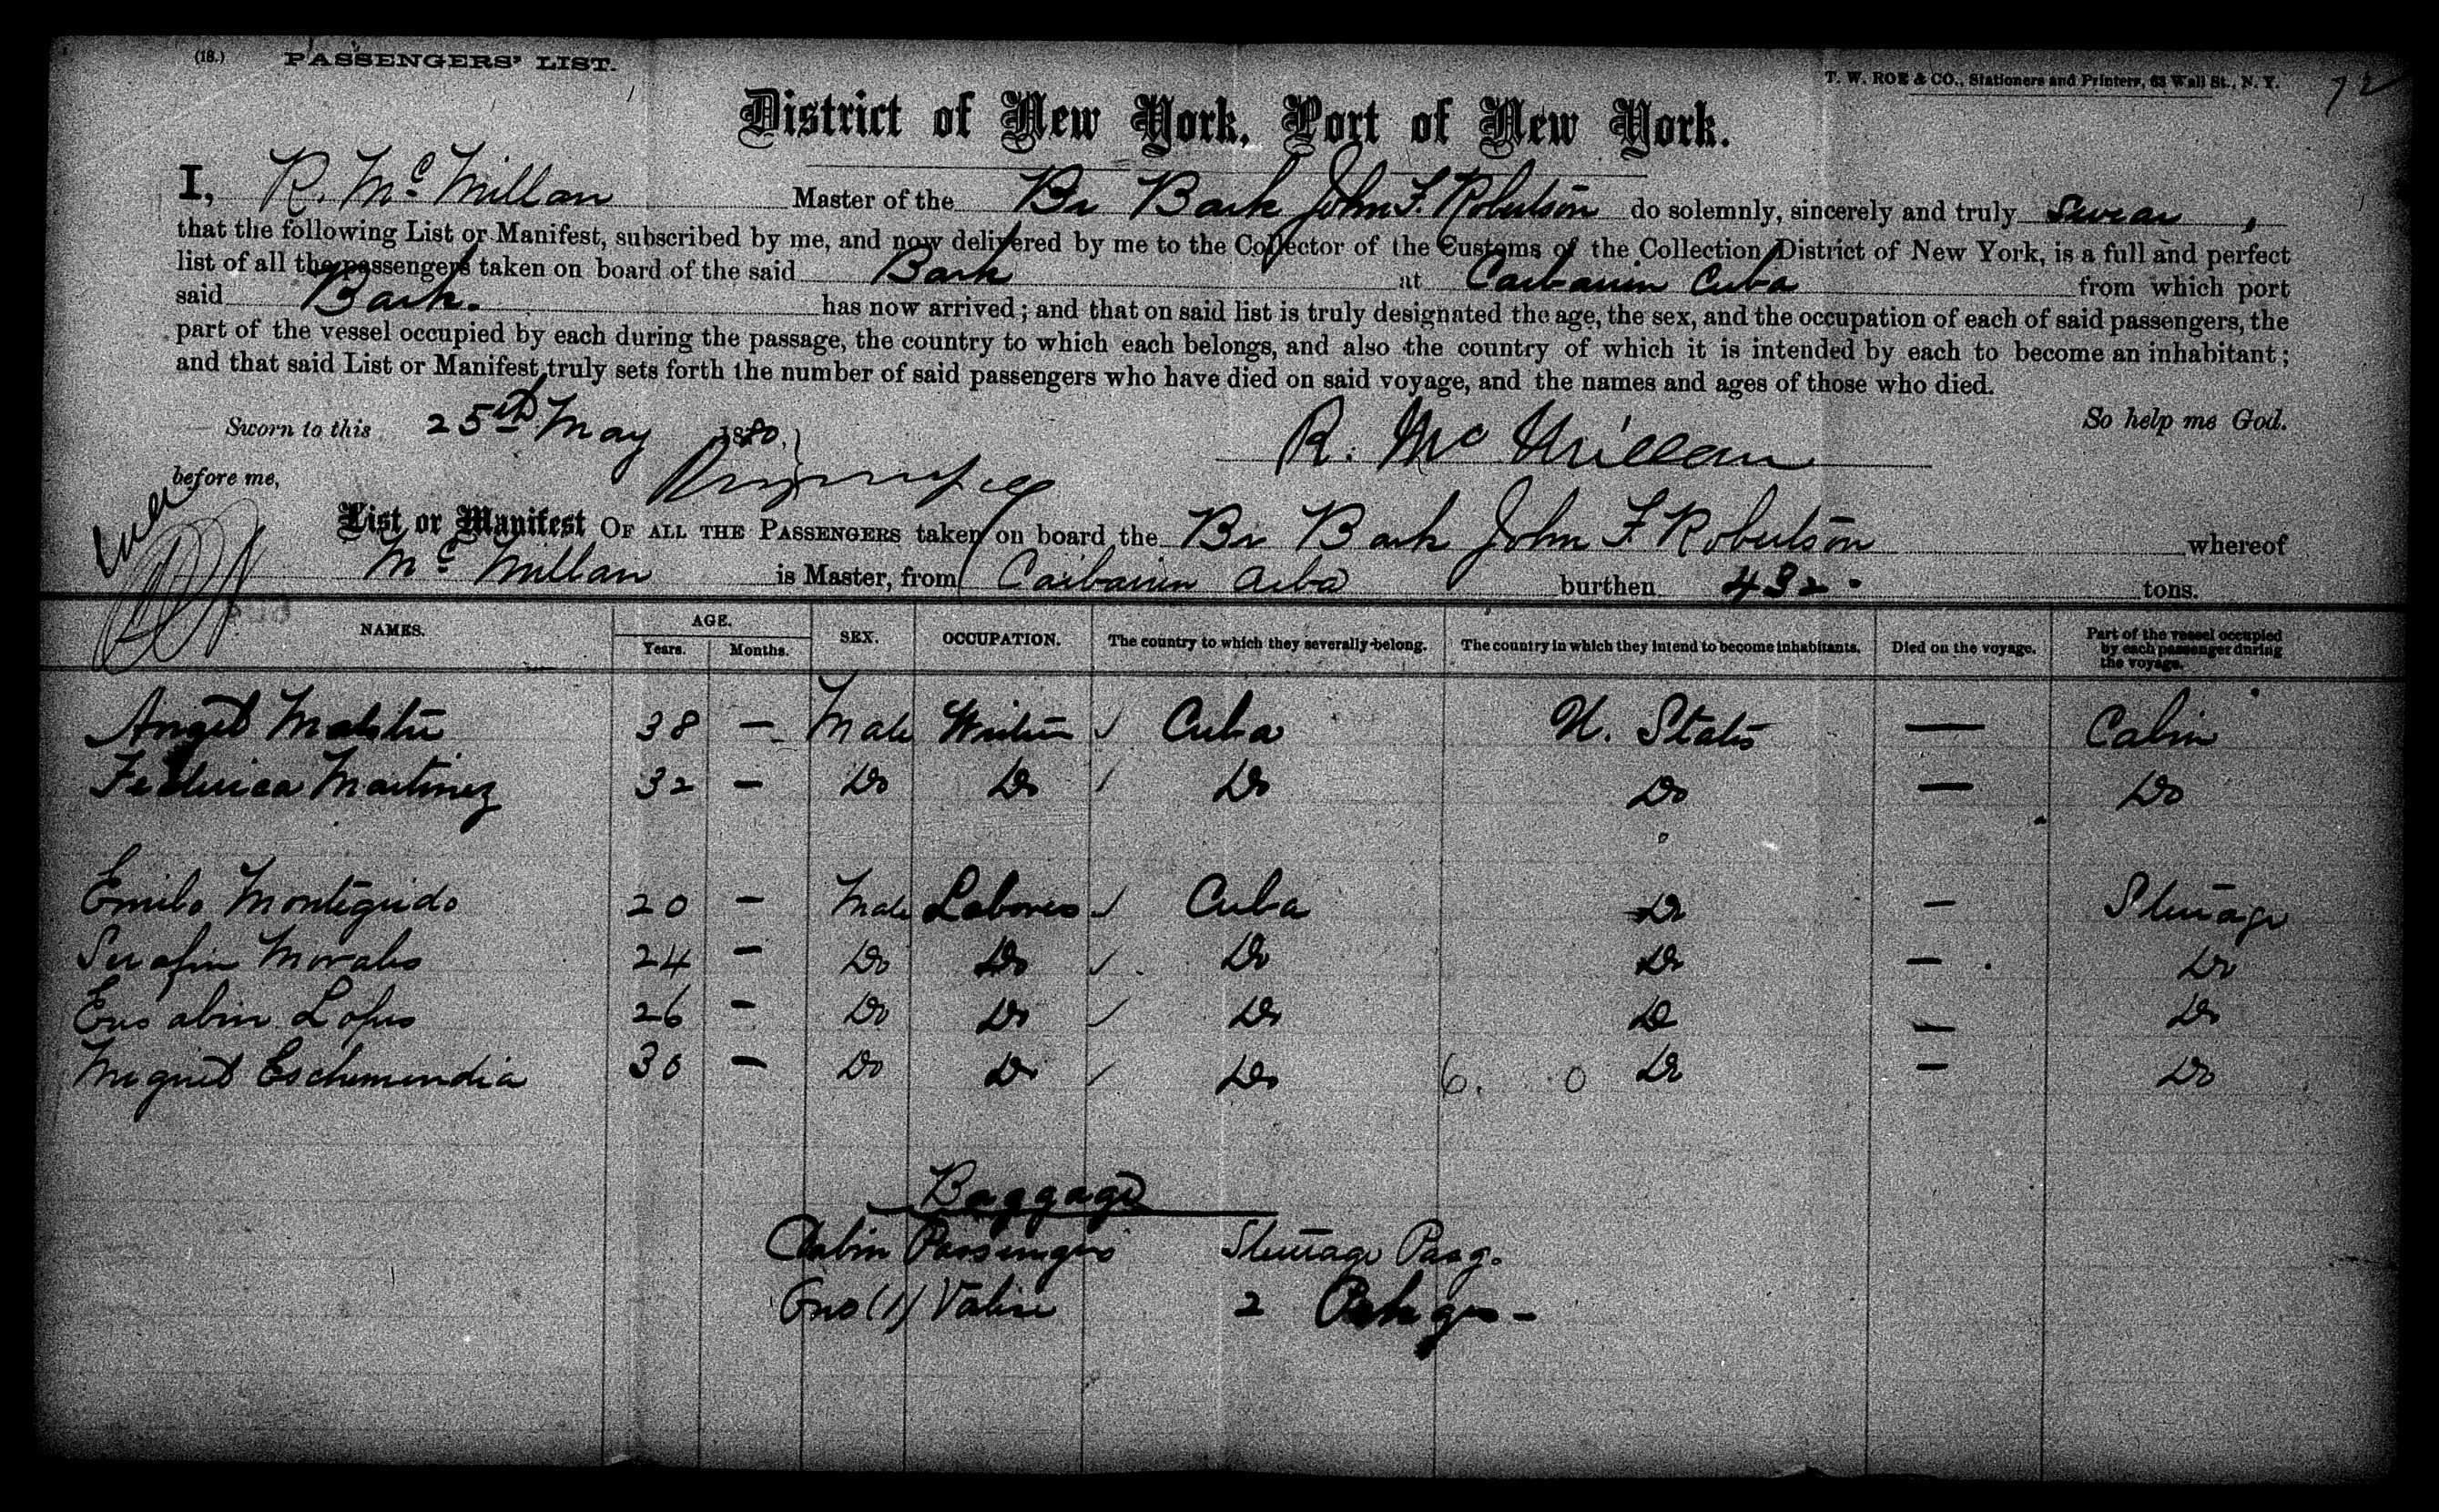 (18.) PASSENGERS' LIST.
T. W. ROE & CO., Stationers and Printers, 63 Wall St., N. Y. 72
District of New York, Port of New York.
I, R. Mc Millan Master of the Br Bark John F. Robertson do solemnly, sincerely and truly swear,
that the following List or Manifest, subscribed by me, and now delivered by me to the Collector of the Customs of the Collection District of New York, is a full and perfect
list of all the passengers taken on board of the said Bark at Caibarien Cuba from which port
said Bark. has now arrived; and that on said list is truly designated the age, the sex, and the occupation of each of said passengers, the
part of the vessel occupied by each during the passage, the country to which each belongs, and also the country of which it is intended by each to become an inhabitant;
and that said List or Manifest truly sets forth the number of said passengers who have died on said voyage, and the names and ages of those who died.
So help me God.
Sworn to this 25th May 1880,
R. Mc Millan
before me,
List or Manifest OF ALL THE PASSENGERS taken on board the Br Bark John F Robertson whereof
Mc Millan is Master, from Caibarien Cuba burthen 432 tons.
NAMES. AGE. Years. Months. SEX. OCCUPATION. The country to which they severally belong. The country in which they intend to become inhabitants. Died on the voyage. Part of the vessel occupied by each passenger during the voyage.
Angel 38 — Male Cuba U. States — Cabin
Federica Martinez 32 — Do Do Do Do — Do
Emilo Montegudo 20 — Male Labores Cuba Do — Steerage
Serafin Morales 24 — Do Do Do Do — Do
26 — Do Do Do Do — Do
Miguel Eschemendia 30 — Do Do Do 6. 0 Do — Do
Baggage
Cabin Passengers Steerage Pasg.
One (1) Valise 2 Pckges —